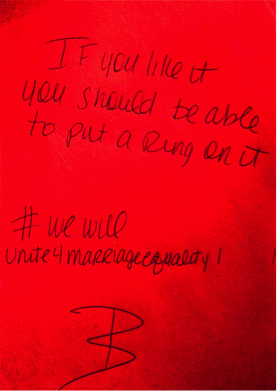 If you like it
you should be able
to put a Ring on it
# we will
unite4marriageequality!
B